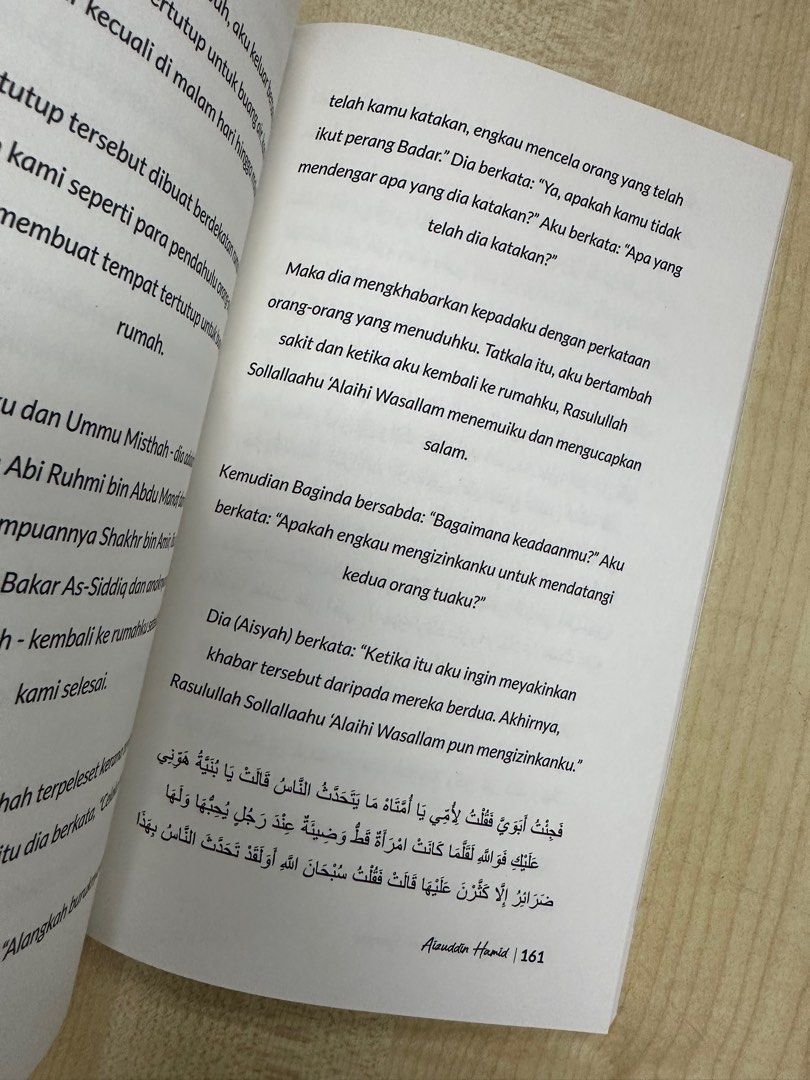 uh, aku keluar
ertutup untuk buang
kecuali di malam hari hingga
tutup tersebut dibuat berdekatan
kami seperti para pendahulu orang
membuat tempat tertutup untuk
rumah.
ku dan Ummu Misthah - dia
Abi Ruhmi bin Abdu Manaf
mpuannya Shakhr bin Amir,
Bakar As-Siddiq dan
h - kembali ke rumahku
kami selesai.
hah terpeleset kerana
itu dia berkata,
"Alangkah
telah kamu katakan, engkau mencela orang yang telah
ikut perang Badar." Dia berkata: "Ya, apakah kamu tidak
mendengar apa yang dia katakan?" Aku berkata: "Apa yang
telah dia katakan?"
Maka dia mengkhabarkan kepadaku dengan perkataan
orang-orang yang menuduhku. Tatkala itu, aku bertambah
sakit dan ketika aku kembali ke rumahku, Rasulullah
Sollallaahu 'Alaihi Wasallam menemuiku dan mengucapkan
salam.
Kemudian Baginda bersabda: "Bagaimana keadaanmu?" Aku
berkata: "Apakah engkau mengizinkanku untuk mendatangi
kedua orang tuaku?"
Dia (Aisyah) berkata: "Ketika itu aku ingin meyakinkan
khabar tersebut daripada mereka berdua. Akhirnya,
Rasulullah Sollallaahu 'Alaihi Wasallam pun mengizinkanku."
فَجِئْتُ أَبَوَيَّ فَقُلْتُ لِأُمِّي يَا أُمَّتَاهُ مَا يَتَحَدَّثُ النَّاسُ قَالَتْ يَا بُنَيَّةُ هَوِّنِي
عَلَيْكِ فَوَاللَّهِ لَقَلَّمَا كَانَتْ امْرَأَةٌ قَطُّ وَضِيئَةٌ عِنْدَ رَجُلٍ يُحِبُّهَا وَلَهَا
ضَرَائِرُ إِلَّا كَثَّرْنَ عَلَيْهَا قَالَتْ فَقُلْتُ سُبْحَانَ اللَّهِ أَوَلَقَدْ تَحَدَّثَ النَّاسُ بِهَذَا
Aizuddin Hamid | 161